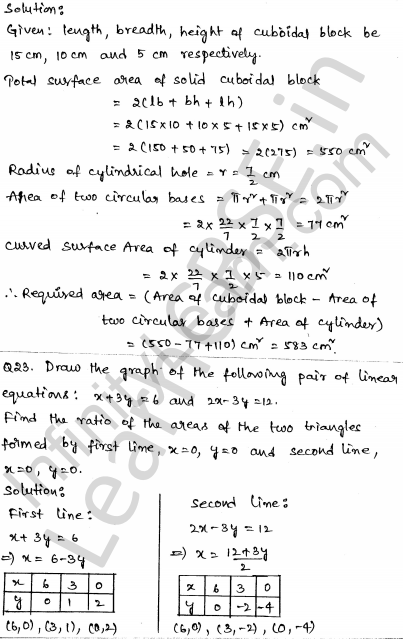 Solution:
Given: length, breadth, height of cuboidal block be
15 cm, 10 cm and 5 cm respectively.
Total surface area of solid cuboidal block
= 2(lb + bh + lh)
= 2(15×10 + 10×5 + 15×5) cm²
= 2(150 + 50 + 75) = 2(275) = 550 cm²
Radius of cylindrical hole = r = 7/2 cm
Area of two circular bases = πr² + πr² = 2πr²
= 2 × 22/7 × 7/2 × 7/2 = 77 cm²
Curved surface Area of cylinder = 2πrh
= 2 × 22/7 × 7/2 × 5 = 110 cm²
∴ Required area = (Area of cuboidal block - Area of
two circular bases + Area of cylinder)
= (550 - 77 + 110) cm² = 583 cm².
Q23. Draw the graph of the following pair of linear
equations: x+3y=6 and 2x-3y=12.
Find the ratio of the areas of the two triangles
formed by first line, x=0, y=0 and second line,
x=0, y=0.
Solution:
First line:
x + 3y = 6
⇒ x = 6-3y
x 6 3 0
y 0 1 2
(6,0), (3,1), (0,2)
Second line:
2x - 3y = 12
⇒ x = 12+3y/2
x 6 3 0
y 0 -2 -4
(6,0), (3,-2), (0,-4)